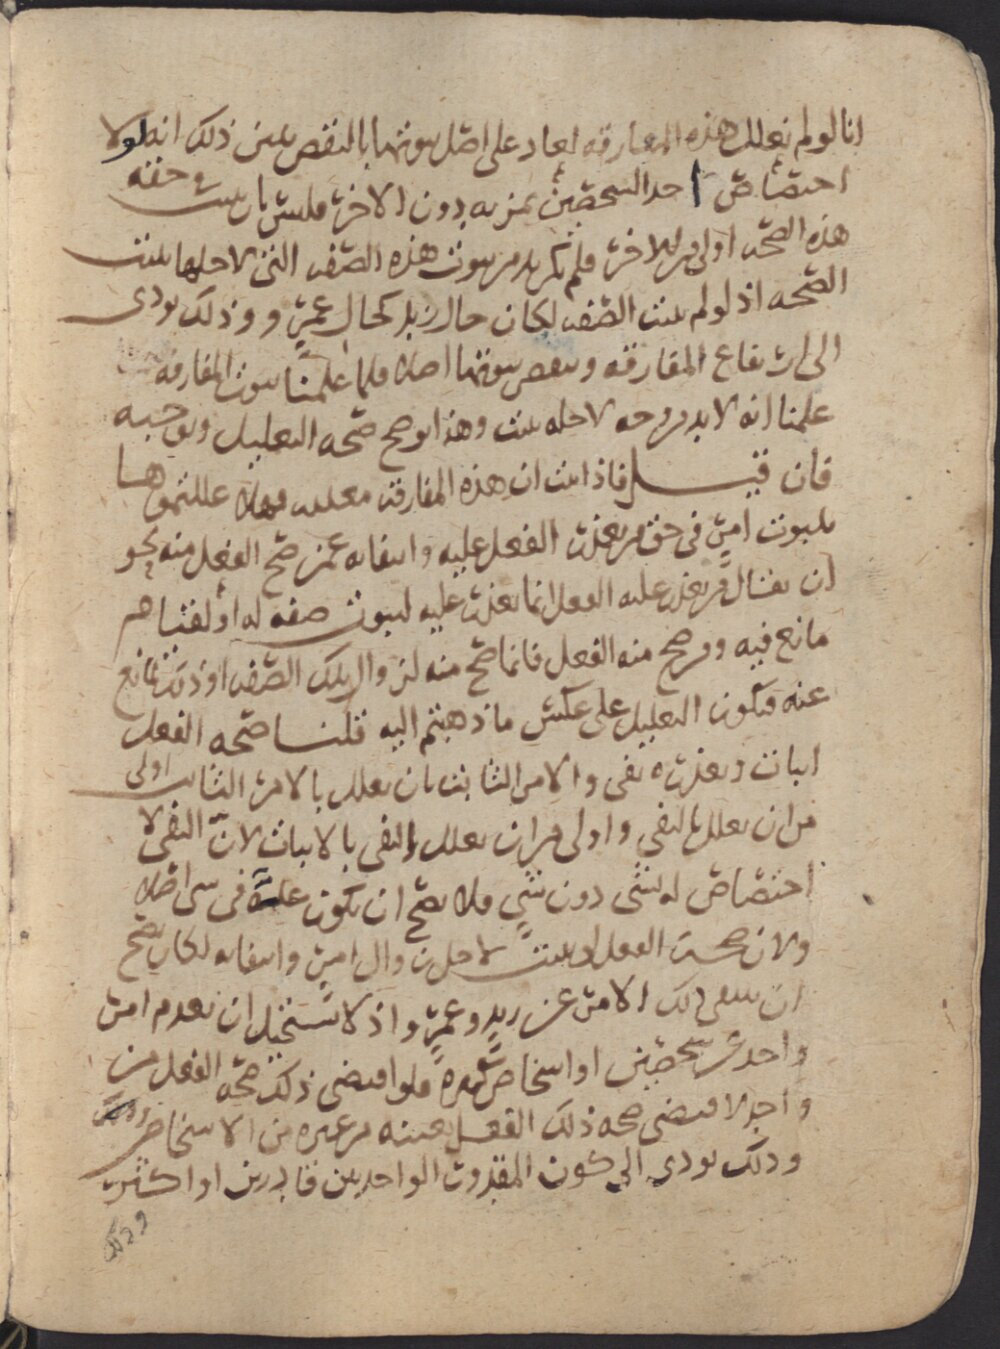 انا لو لم نعلل هذه المفارقه لعاد على اصل ثبوتها بالنقص يبين ذلك انه لولا
اختصاص احد الشخصين بمزيه دون الاخر فليس بان يثبت في حقه
هذه الصحه اولى من الاخر فلم يكن بد من ثبوت هذه الصفه التي لاجلها يثبت
الصحه اذ لو لم يثبت الصفه لكان حال زيد كحال عمرو وذلك يودى
الى ارتفاع المفارقه وينقص ثبوتها اصلا فلما علمنا ثبوت المفارقه
علمنا انه لا بد من وجه لاجله يثبت وهذا يوضح صحه التعليل ويوجبه
فان قيل فاذا ثبت ان هذه المفارقه معلله فهلا عللتموها
بثبوت امر في حق من تعذر الفعل عليه وانتفايه عمن صح الفعل منه نحو
ان يقال من تعذر عليه الفعل انما تعذر عليه لثبوت صفه له او لقيام
مانع فيه ومن صح منه الفعل فانما صح منه لزوال تلك الصفه او ذلك المانع
عنه فيكون التعليل على عكس ما ذهبتم اليه قلنا صحه الفعل
اثبات وتعذره نفي والامر الثابت بان يعلل بالامر الثابت اولى
من ان يعلل بالنفي واولى من ان يعلل النفي بالاثبات لان النفي لا
اختصاص له بشي دون شي فلا يصح ان يكون علة في شي اصلا
ولان صحت الفعل لو يثبت لاجل زوال امر وانتفايه لكان يصح
ان ينتفي ذلك الامر عن زيد وعمرو اذ لا يستحيل ان يعدم امر
واحد عن شخصين او اشخاص كثيرة فلو اقتضى ذلك صحه الفعل من
واحد لاقتضى صحه ذلك الفعل بعينه من غيره من الاشخاص
وذلك يودى الى كون المقدور الواحد بين قادرين او اكثر
وذلك